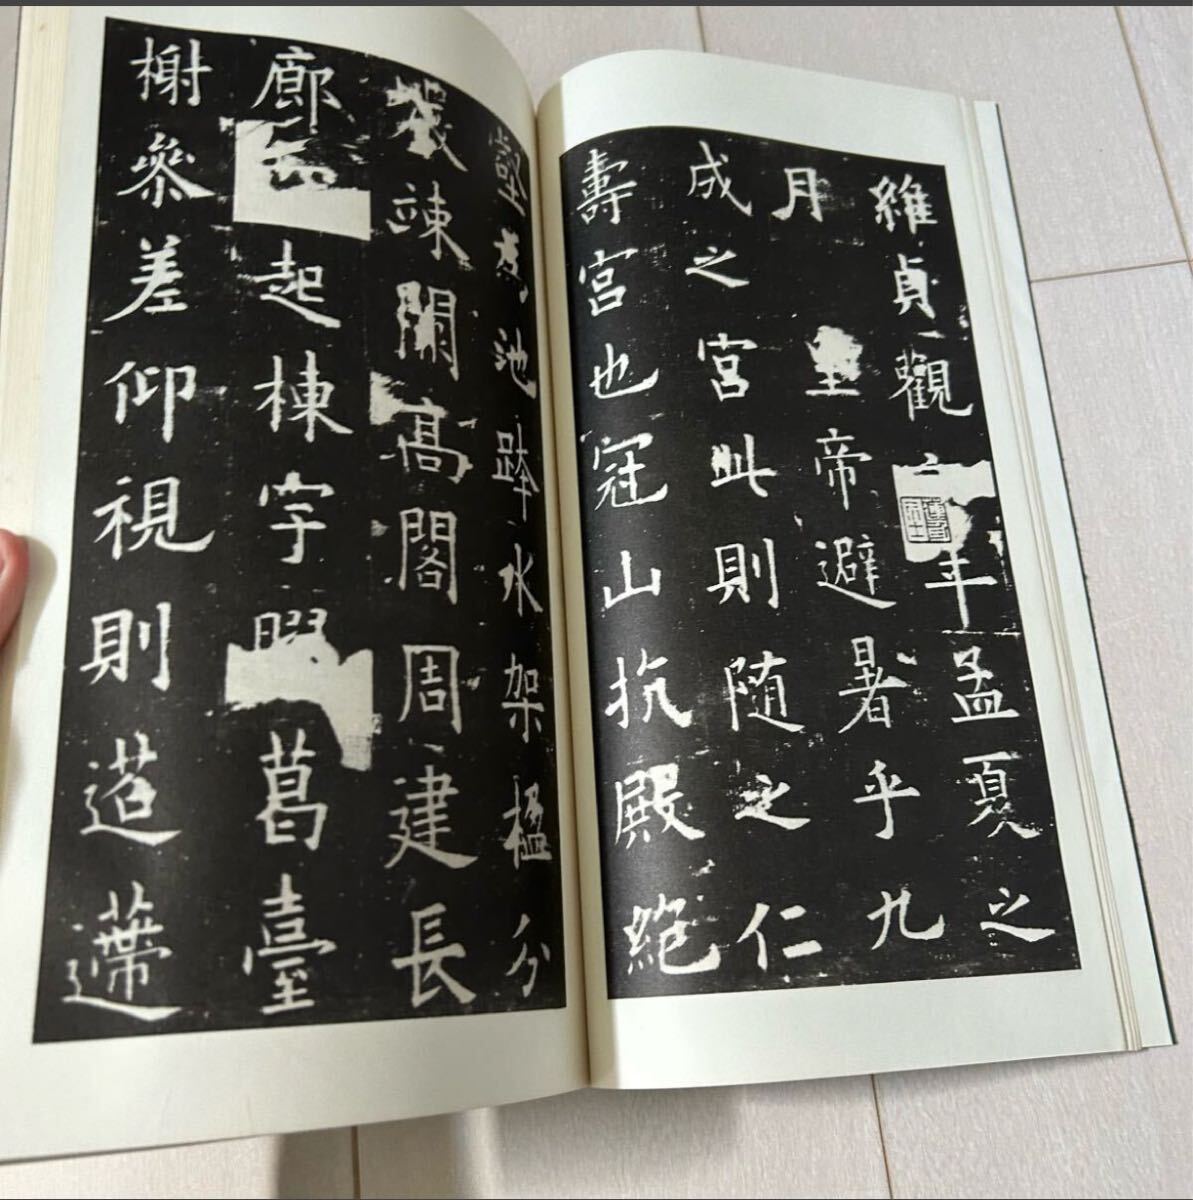 維貞觀年孟夏之
月皇帝避暑乎九
成之宮此則随之仁
壽宮也冠山抗殿絶
壑為池跨水架楹分
巖竦闕高閣周建長
廊起棟宇葛臺
榭參差仰視則迢遰